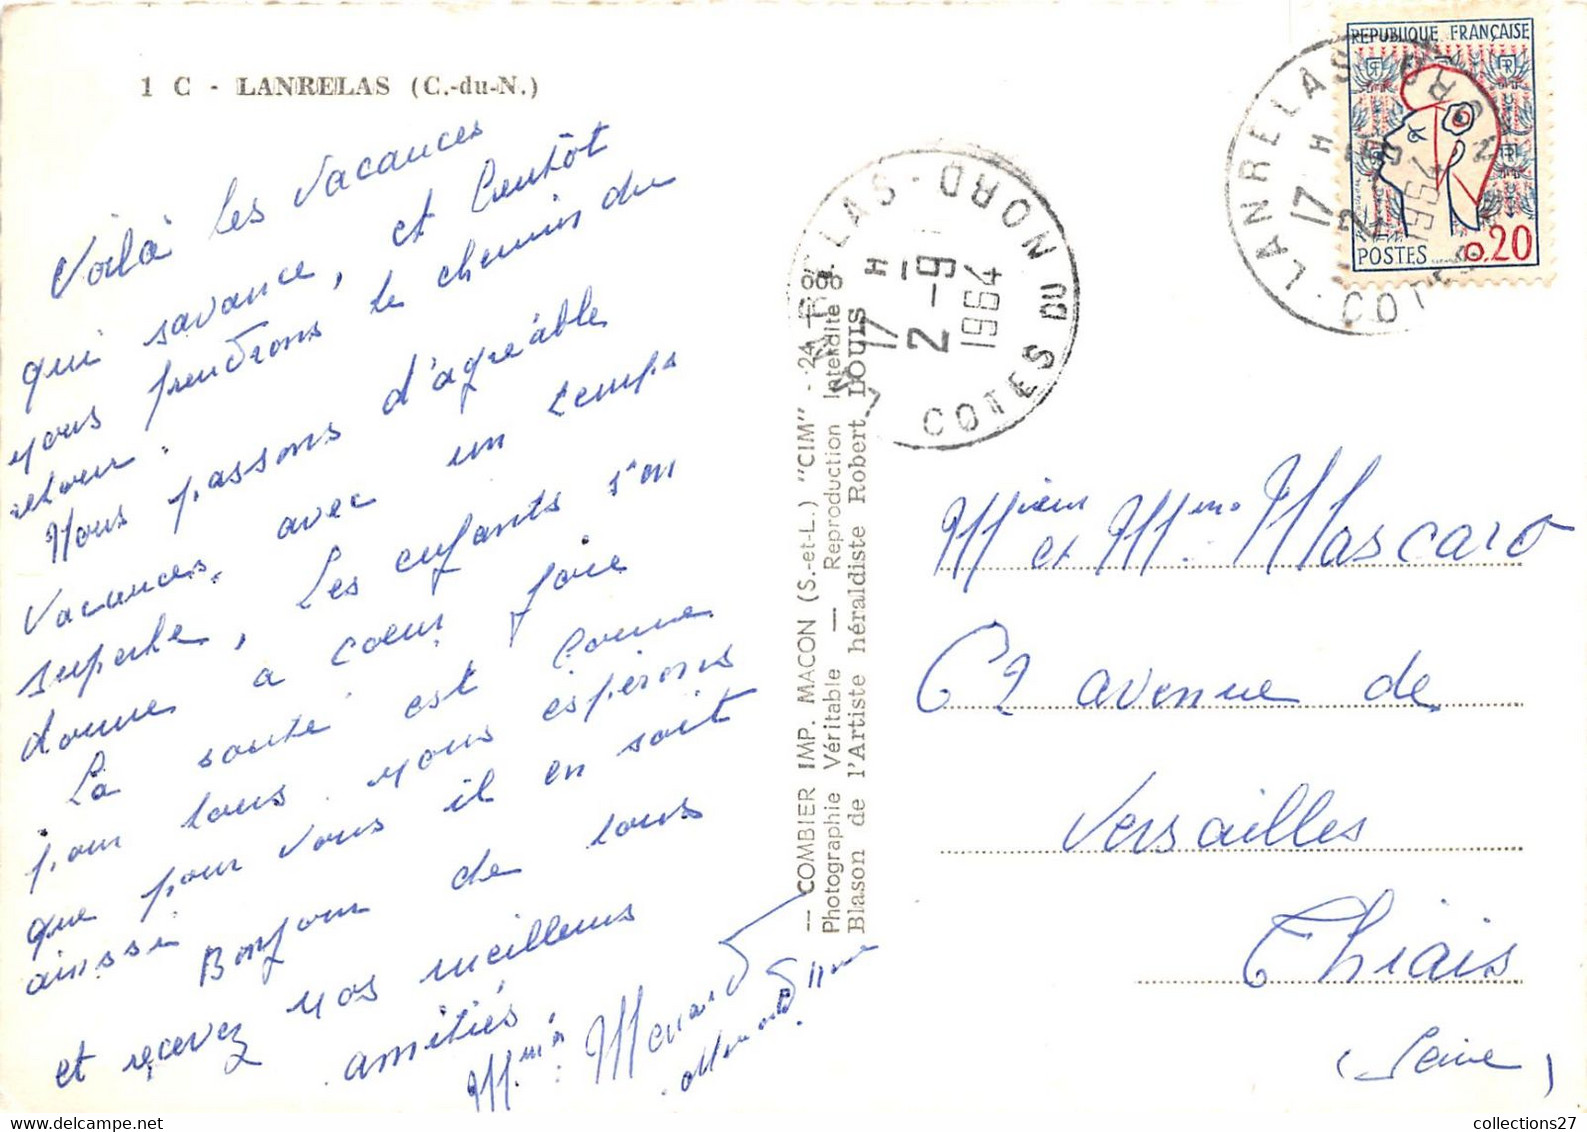 1 C - LANRELAS (C.-du-N.)
Voilà les vacances
qui savance, et bientôt
nous prendrons le chemin du
retour.
Nous passons d'agréable
vacances, avec un temps
superbe, Les enfants s'en
donnes a coeur joie
La santé est bonne
pour tous nous espérons
que pour vous il en soit
ainssi Bonjour de tous
et recevez nos meilleurs
amitiés,
— COMBIER IMP. MACON (S.-et-L.) "CIM" -
Photographie Véritable — Reproduction Interdite
Blason de l'Artiste héraldiste Robert LOUIS
LANRELAS - COTES DU NORD
17 H
2 - 9
1964
REPUBLIQUE FRANÇAISE
POSTES 0,20
LANRELAS
COTES
17 H
2
1964
et Mme Mascaro
62 avenue de
Versailles
Thiais
(Seine)
collections27